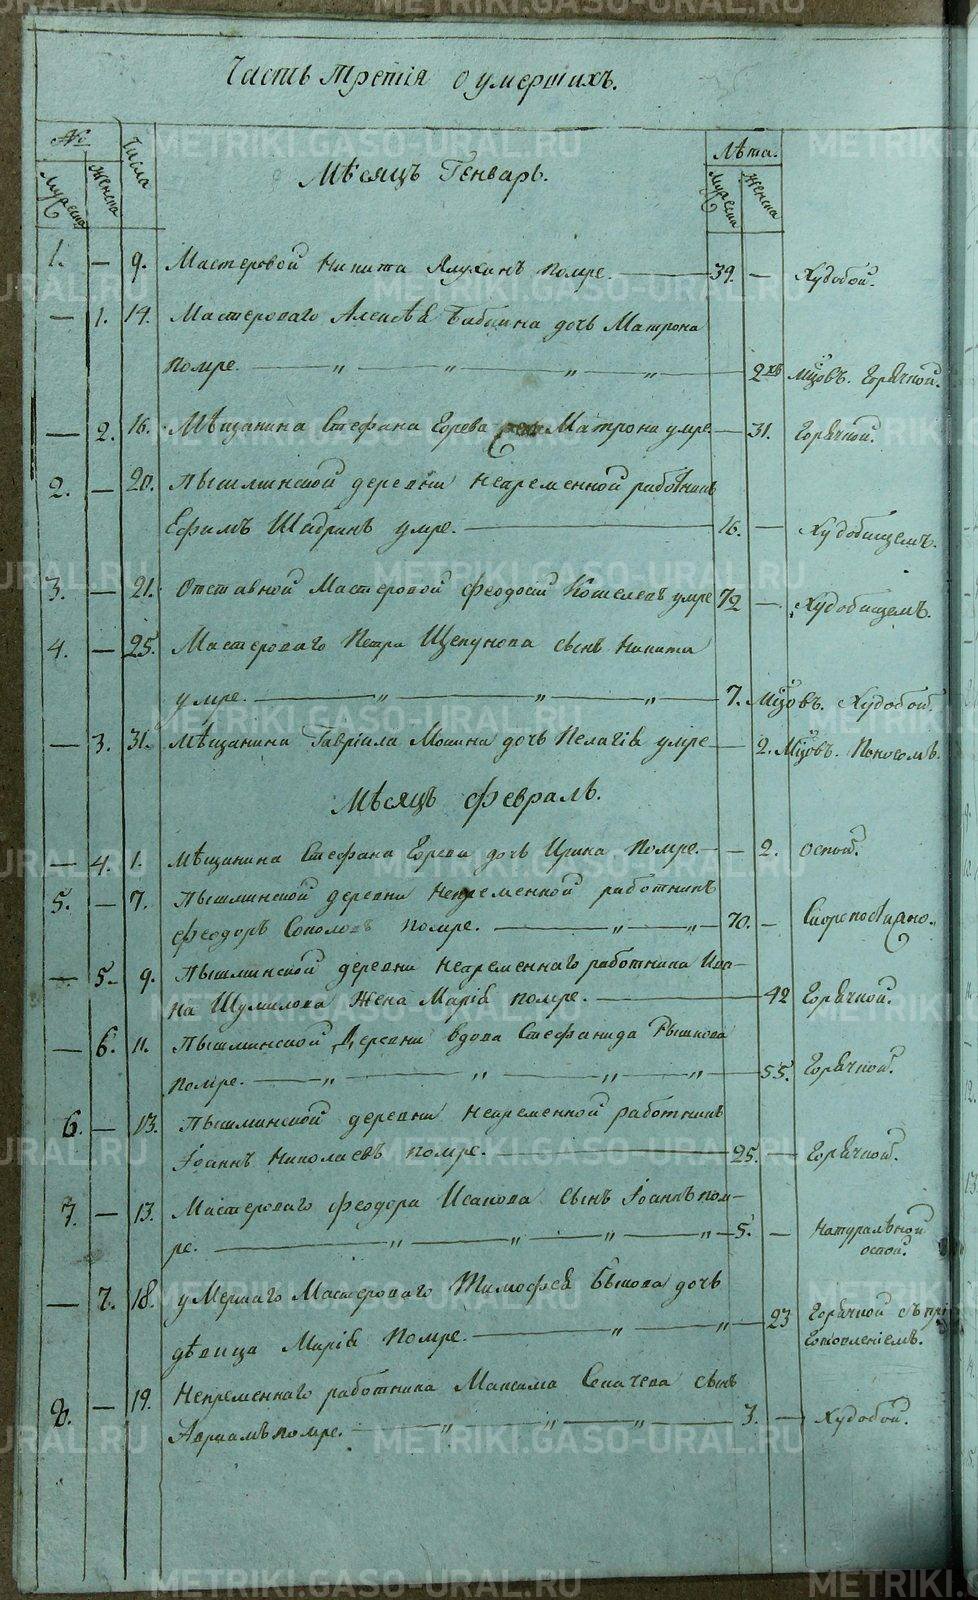 Часть третія о умершихъ.
№
Числа
Лѣта.
Мужеска
Женска
Мѣсяцъ Генварь.
Мужеска
Женска
1. — 9. Мастеровой Никита помре. — 39. — Худобой.
— 1. 14. Мастероваго Алексѣя Бабкина дочь Матрона
помре. — „ — „ — „ — „ — 2хъ мцовъ. Горячкой.
— 2. 16. Мѣщанина Стефана Горева Матрона умре — 31. Горячкой.
2. — 20. Пышминской деревни непременной работникъ
Ефимъ Шадринъ умре. — 16. — Худобищемъ.
3. — 21. Отставной Мастеровой Феодосій Кошелевъ умре 72 — Худобищемъ.
4. — 25. Мастероваго Петра Щепунова сынъ Никита
умре. — „ — „ — „ — 7. Мцовъ. Худобой.
— 3. 31. Мѣщанина Гавріила Мокина дочь Пелагія умре — 2. Мцовъ. Поносомъ.
Мѣсяцъ февраль.
— 4. 1. Мѣщанина Стефана Горева дочь Ирина помре. — — 2. оспой.
5. — 7. Пышминской деревни Непременной работникъ
Феодоръ Соколовъ помре. — „ — „ — 70. — Скорепостижно.
— 5. 9. Пышминской деревни непременнаго работника Ива-
на Шумилова Жена Марія помре. — 42 Горячкой.
— 6. 11. Пышминской Деревни вдова Стефанида Рышкова
помре. — „ — „ — „ — „ — 55. Горячкой.
6. — 13. Пышминской деревни непременной работникъ
Іоаннъ Николаевъ помре. — 25. — Горячкой.
7. — 13. Мастероваго Феодора Исакова сынъ Іоаннъ пом-
ре. — „ — „ — „ — „ — 5. — Натуральной
оспой.
— 7. 18. умершаго Мастероваго Тимофея Быкова дочь
дѣвица Марія помре. — „ — „ — 23 Горячкой съ при
готовленіемъ.
8. — 19. Непременнаго работника Максима Сапачева сынъ
Авраамъ помре. — „ — „ — „ — 3. — Худобой.
METRIKI.GASO-URAL.RU